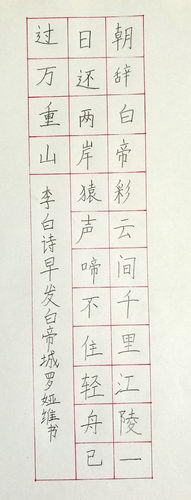 朝辞白帝彩云间千里江陵一
日还两岸猿声啼不住轻舟已
过万重山
李白诗早发白帝城罗娅维书